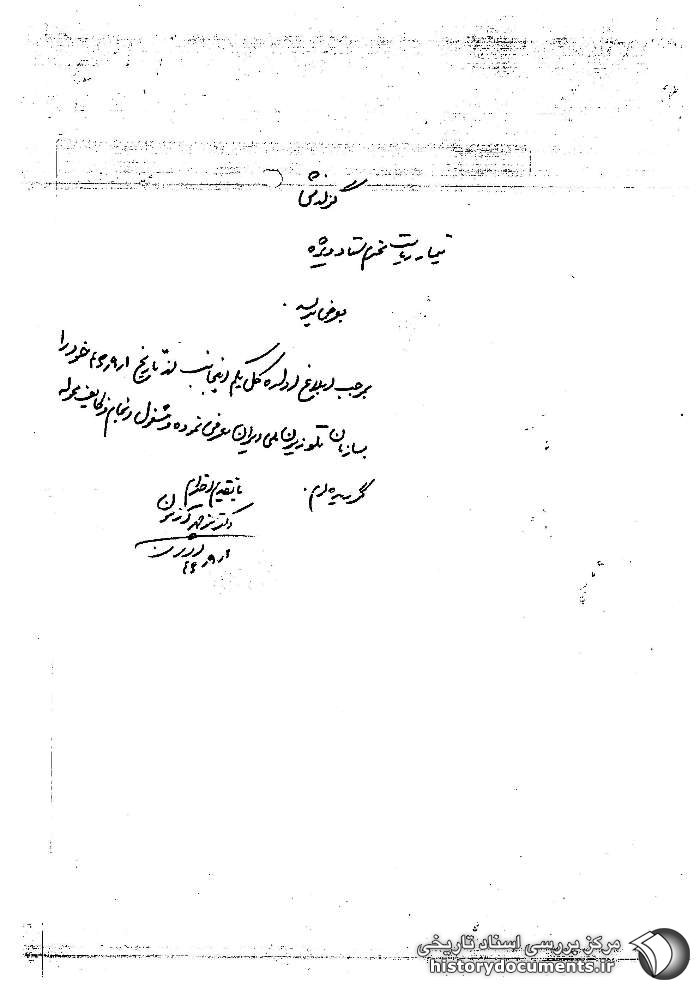 تیمسار ریاست محترم ستاد ویژه
بعرض میرساند
برحسب ابلاغ اداره کل یکم اینجانب از تاریخ ۴۶٫۹٫۱ خود را
بسازمان تلویزیون ملی ایران معرفی نموده و مشغول انجام وظایف محوله
گردیده‌ام.
با تقدیم احترام
دکتر
مرکز بررسی اسناد تاریخی
historydocuments.ir